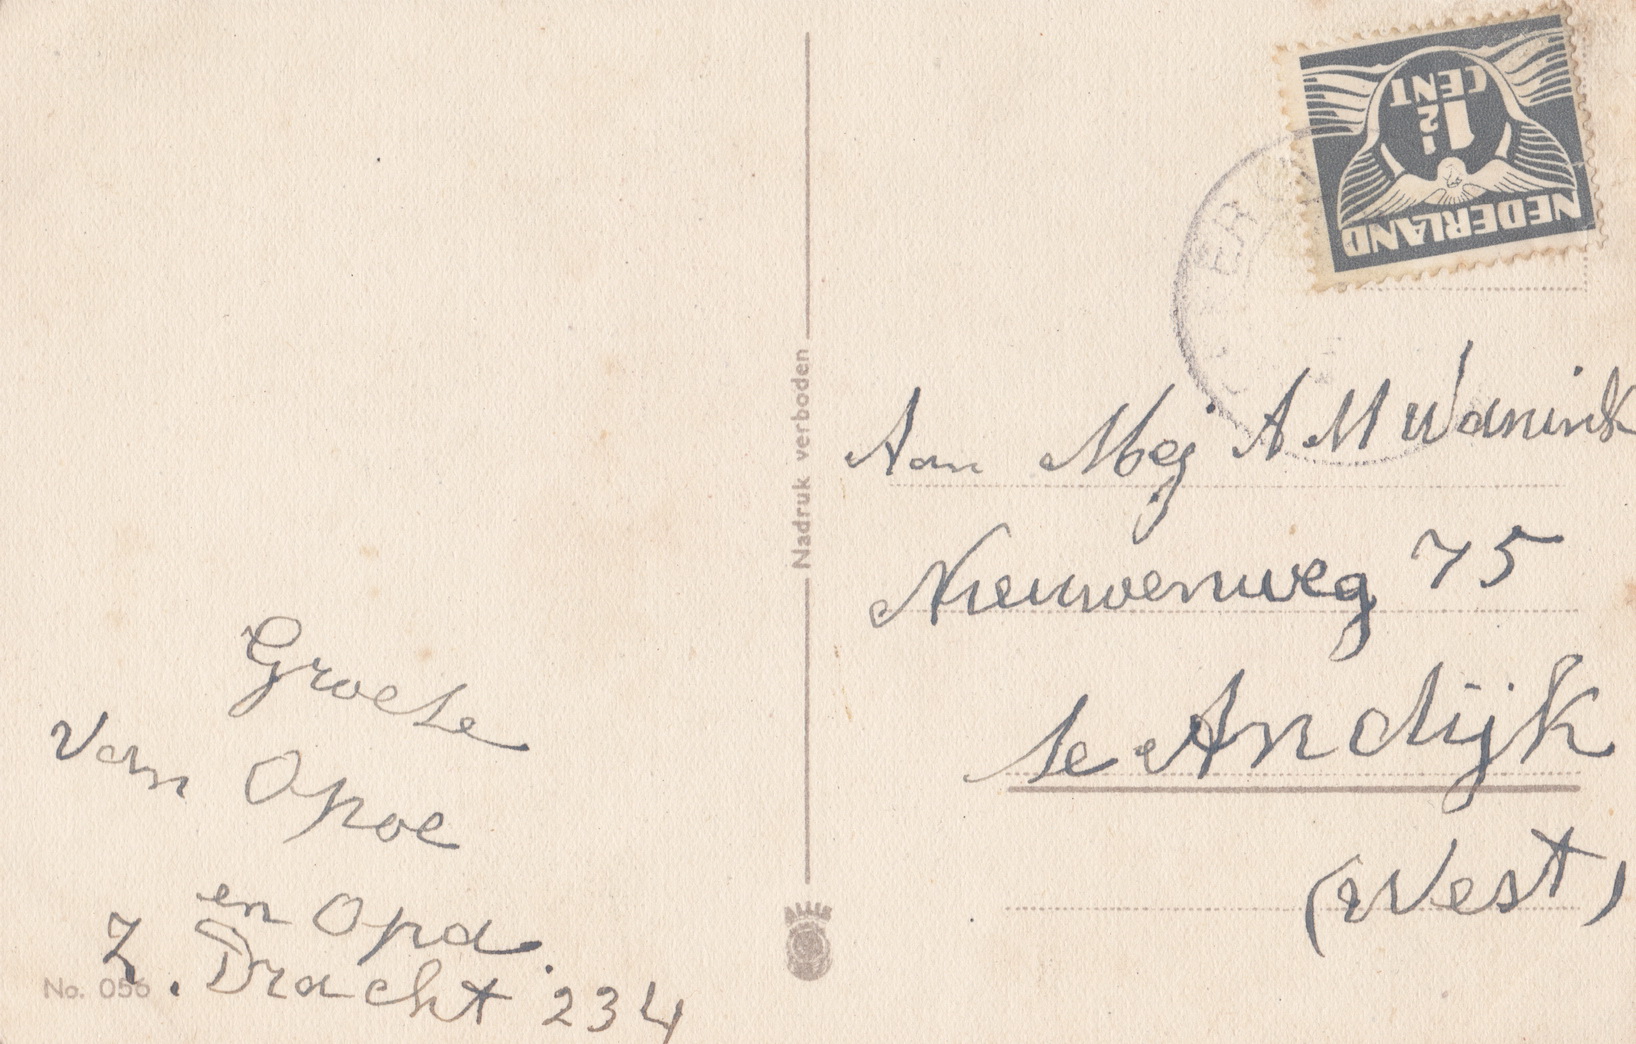 Groete
van Opoe
en Opa.
Z. Dracht 234
No. 056
Nadruk verboden
NEDERLAND
1½
CENT
Aan Mej A M Wanink
Nieuwenweg 75
te Andijk
(West)